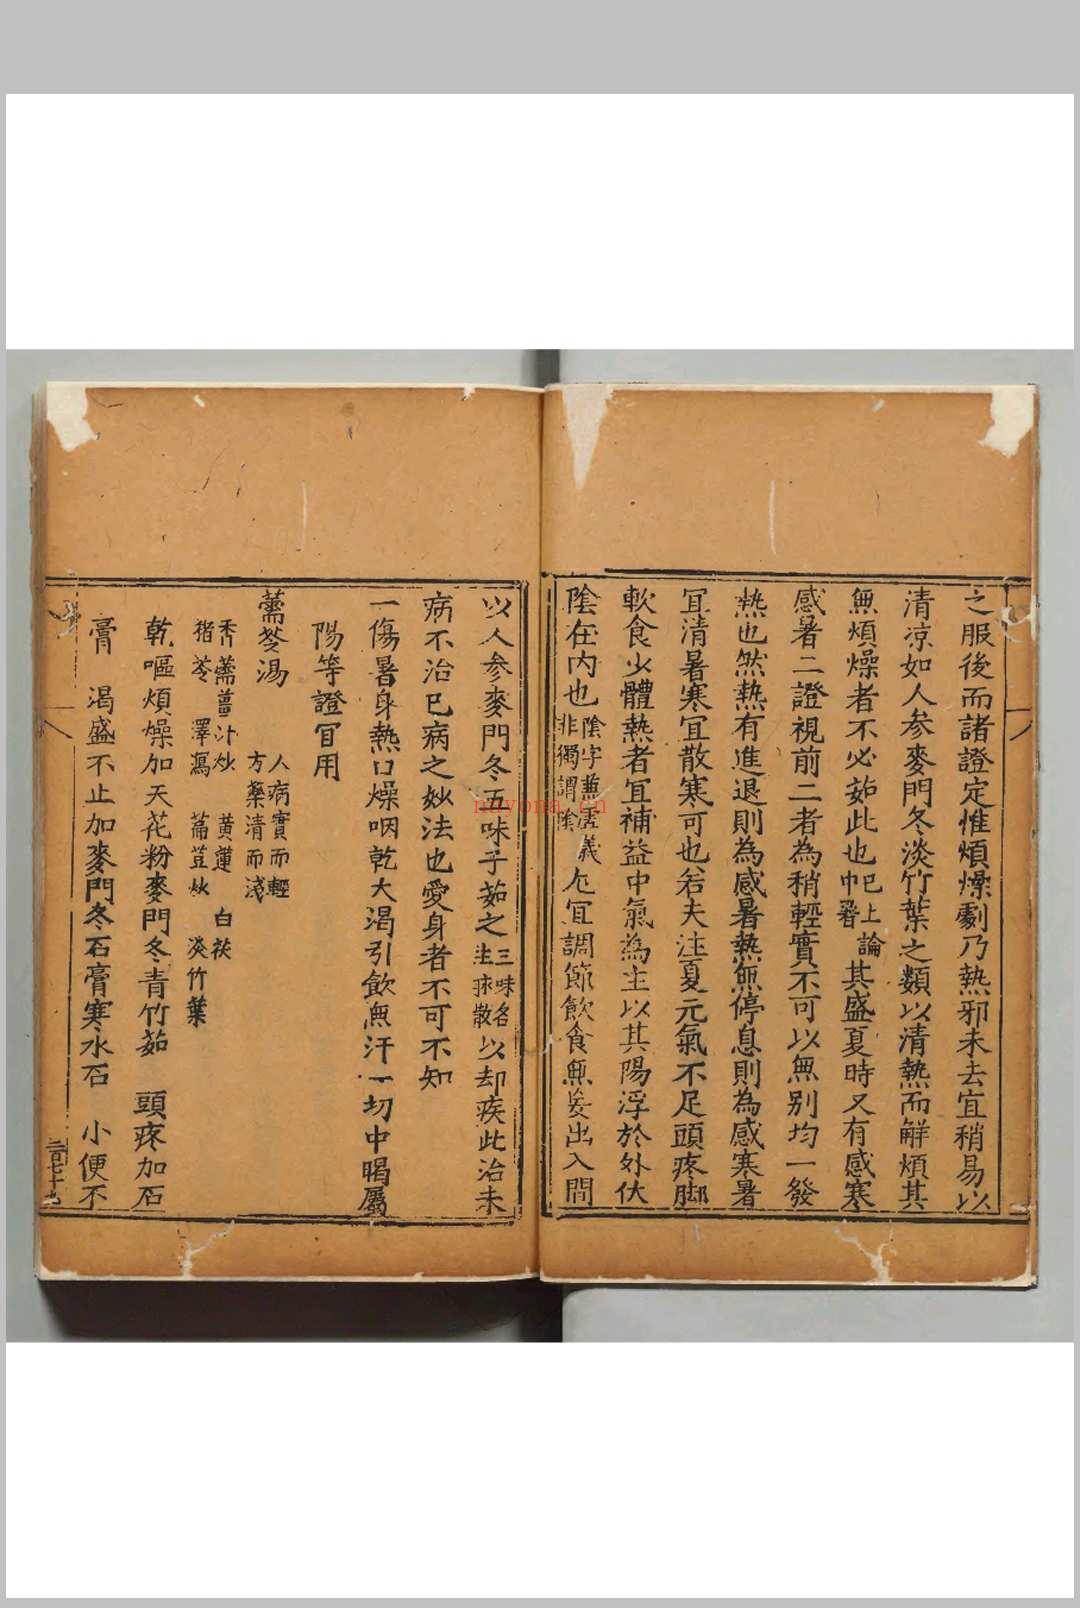 之服後而諸證定惟煩燥劇乃熱邪未去宜稍易以
清凉如人参麥門冬淡竹葉之類以清熱而解煩其
無煩燥者不必茹此也已上論中暑其盛夏時又有感寒
感暑二證視前二者為稍輕實不可以無别均一發
熱也然熱有進退則為感暑熱無停息則為感寒暑
宜清暑寒宜散寒可也若夫注夏元氣不足頭疼脚
軟食少體熱者宜補益中氣為主以其陽浮於外伏
陰在内也陰字兼虗義非獨謂陰尤宜調節飲食無妄出入間
以人参麥門冬五味子茹之三味名生脉散以却疾此治未
病不治已病之妙法也愛身者不可不知
一傷暑身熱口燥咽乾大渴引飲無汗一切中暍屬
陽等證冝用
薷苓湯 人病實而輕方藥清而淺
香薷薑汁炒 黄蓮 白茯
猪苓 澤瀉 萹荳炒 淡竹葉
乾嘔煩燥加天花粉麥門冬青竹茹 頭疼加石
膏 渴盛不止加麥門冬石膏寒水石 小便不
nayona.cn